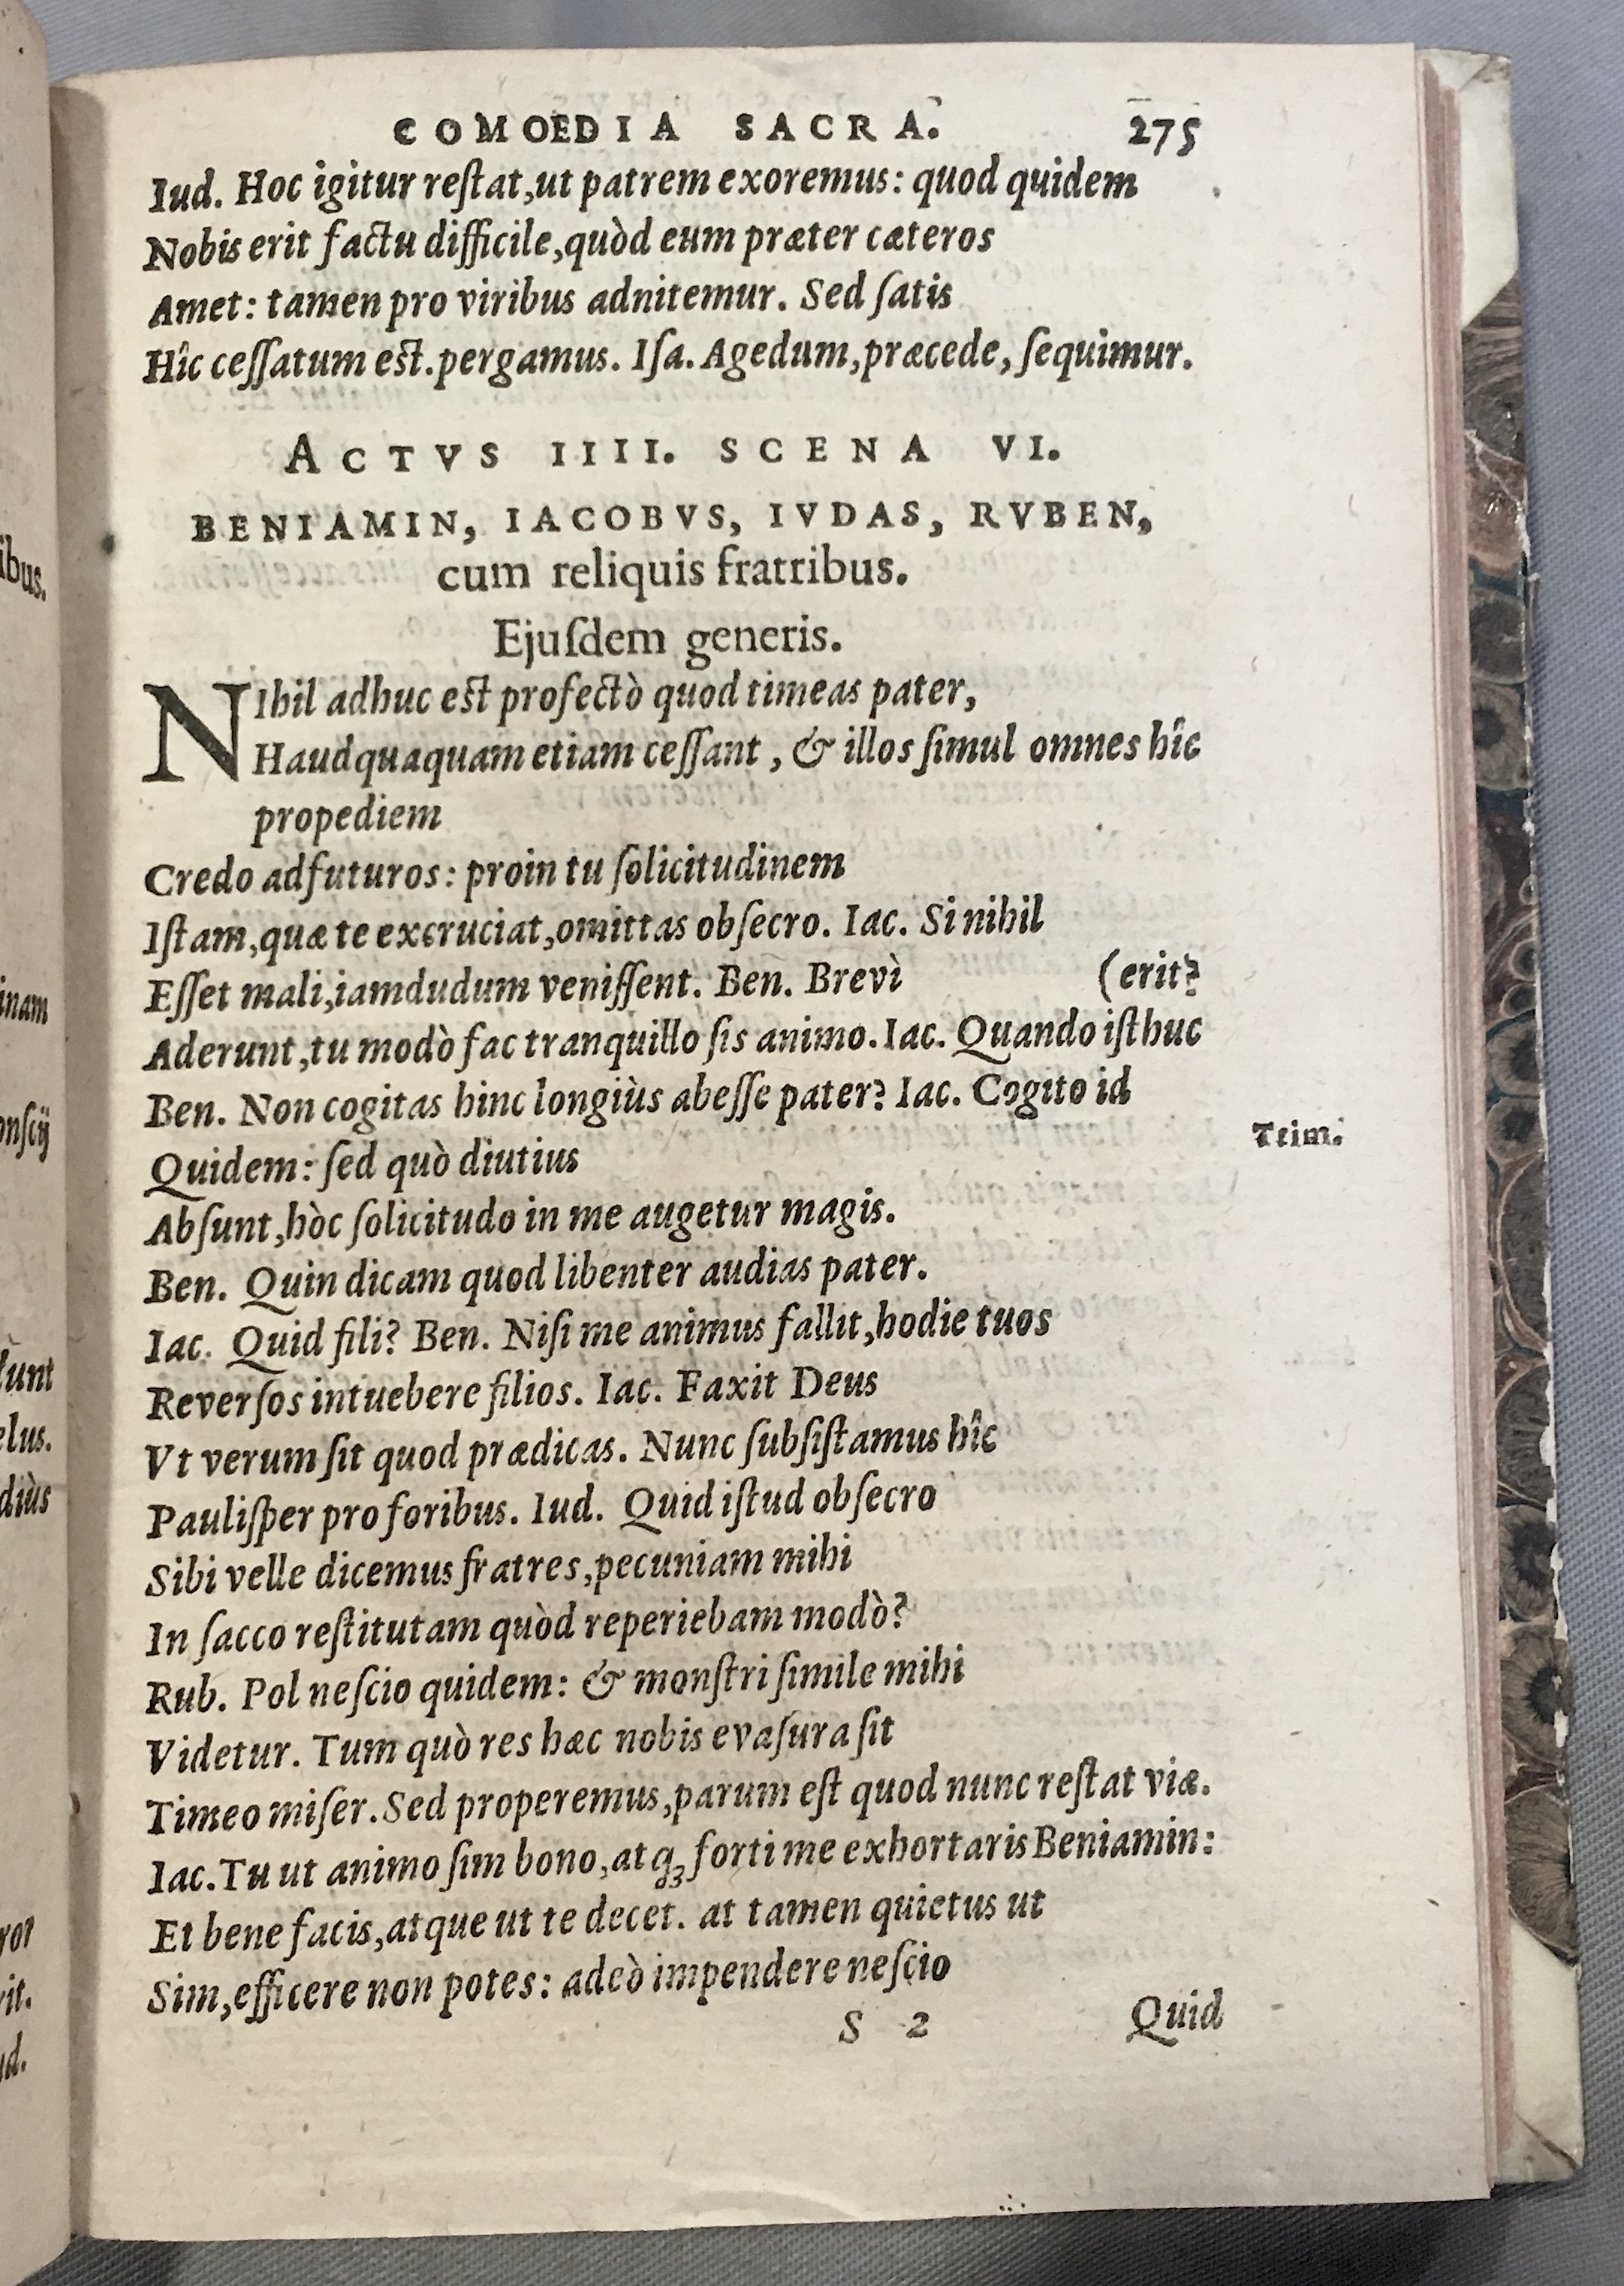 COMOEDIA SACRA. 275
Iud. Hoc igitur reſtat,ut patrem exoremus: quod quidem
Nobis erit factu difficile,quòd eum præter cæteros
Amet: tamen pro viribus adnitemur. Sed ſatis
Hîc ceſſatum eſt.pergamus. Iſa. Agedum,præcede, ſequimur.
ACTVS IIII. SCENA VI.
BENIAMIN, IACOBVS, IVDAS, RVBEN,
cum reliquis fratribus.
Ejuſdem generis.
NIhil adhuc eſt profectò quod timeas pater,
Haudquaquam etiam ceſſant, & illos ſimul omnes hîc
propediem
Credo adfuturos: proin tu ſolicitudinem
Iſtam,quæ te excruciat,omittas obſecro. Iac. Si nihil
Eſſet mali,iamdudum veniſſent. Ben. Brevì (erit?
Aderunt,tu modò fac tranquillo ſis animo. Iac. Quando iſthuc
Ben. Non cogitas hinc longiùs abeſſe pater? Iac. Cogito id
Trim.
Quidem: ſed quò diutius
Abſunt,hòc ſolicitudo in me augetur magis.
Ben. Quin dicam quod libenter audias pater.
Iac. Quid fili? Ben. Niſi me animus fallit,hodie tuos
Reverſos intuebere filios. Iac. Faxit Deus
Vt verum ſit quod prædicas. Nunc ſubſiſtamus hîc
Pauliſper pro foribus. Iud. Quid iſtud obſecro
Sibi velle dicemus fratres,pecuniam mihi
In ſacco reſtitutam quòd reperiebam modò?
Rub. Pol neſcio quidem: & monſtri ſimile mihi
Videtur. Tum quò res hæc nobis evaſura ſit
Timeo miſer. Sed properemus,parum eſt quod nunc reſtat viæ.
Iac. Tu ut animo ſim bono,atqꝫ forti me exhortaris Beniamin:
Et bene facis,atque ut te decet. at tamen quietus ut
Sim,efficere non potes: adeò impendere neſcio
S 2 Quid
ibus.
inam
onſcij
lunt
elus.
diùs
rit.
ud.